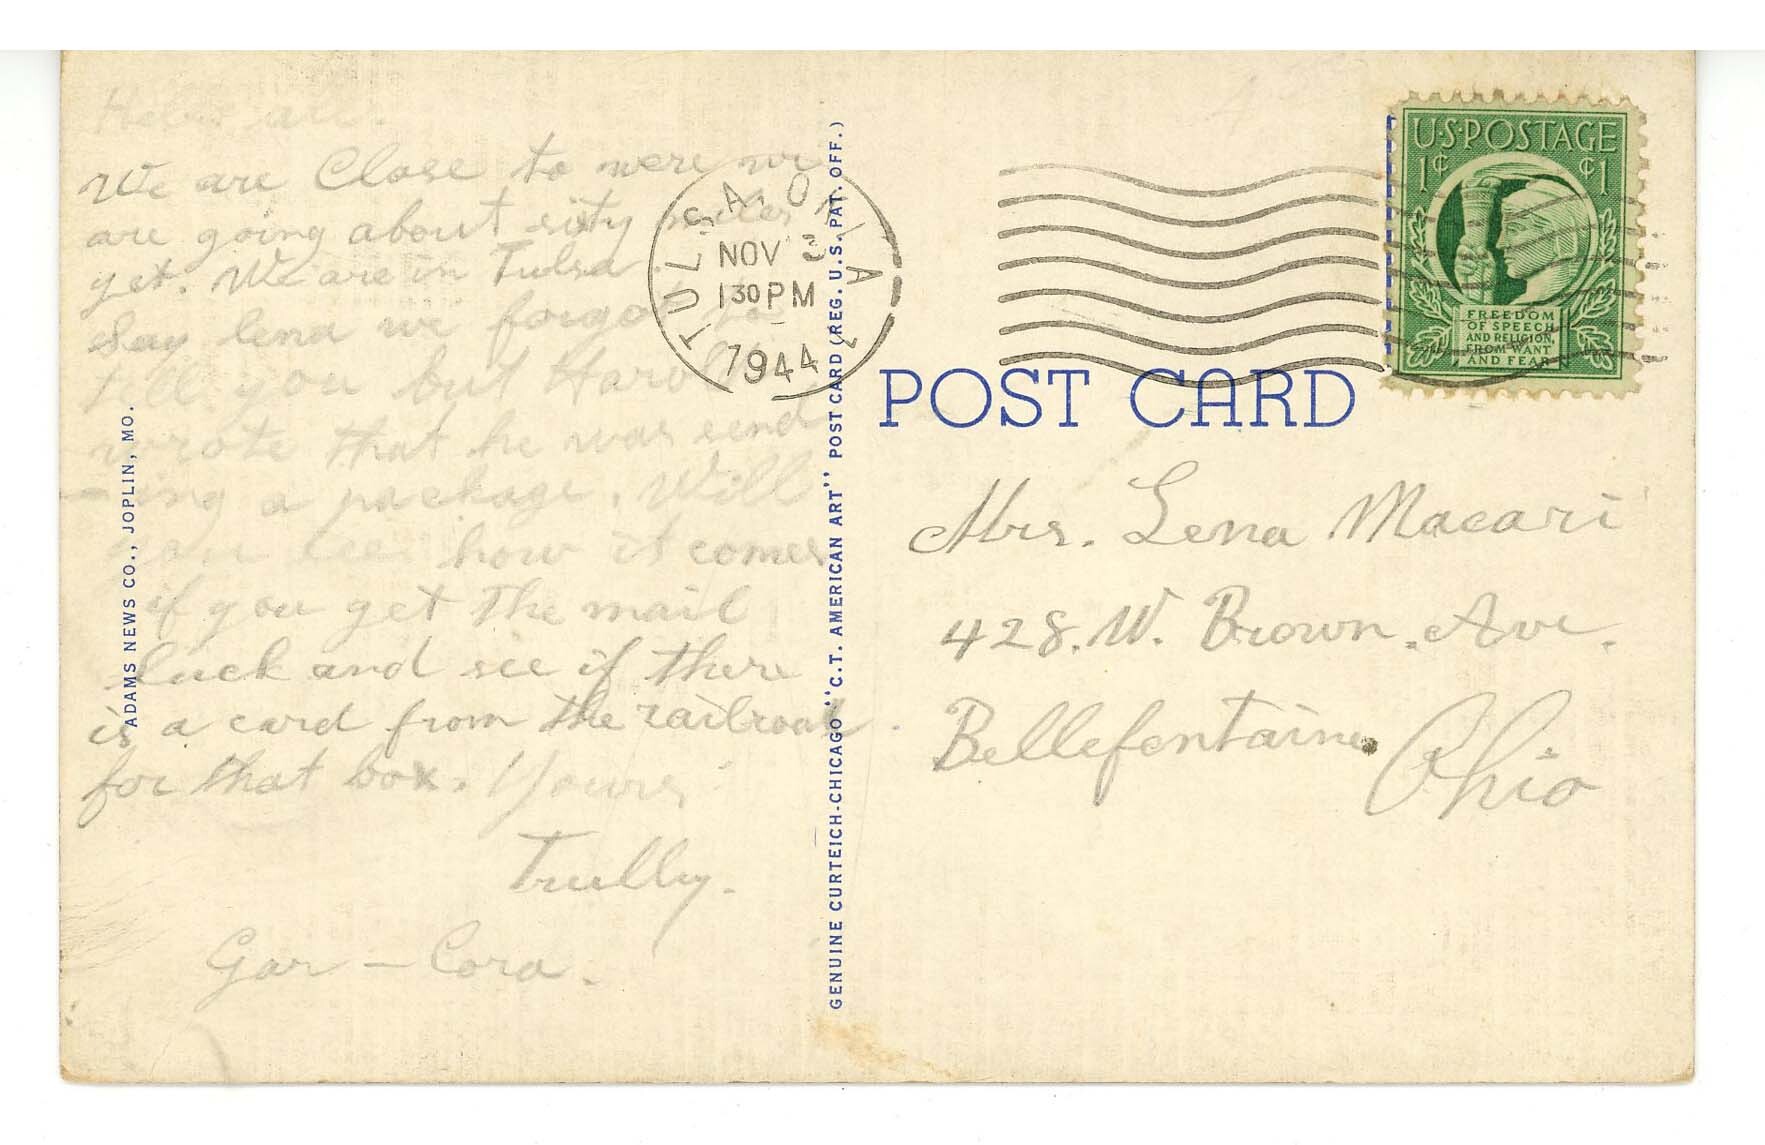 Hello all.
We are Close to were we
are going about sixty miles
yet. We are in Tulsa
Say lena we forgot to
tell you but Harold
wrote that he was send
-ing a package. Will
you see how it comes
if you get the mail
luck and see if there
is a card from the railroad
for that box. Yours
Trully.
Gar - Cora.
ADAMS NEWS CO., JOPLIN, MO.
GENUINE CURTEICH-CHICAGO "C.T. AMERICAN ART" POST CARD (REG. U.S. PAT. OFF.)
TULSA, OKLA.
NOV 3
130 PM
1944
U·S·POSTAGE
1¢ ¢1
FREEDOM
OF SPEECH
AND RELIGION,
FROM WANT
AND FEAR
POST CARD
Mrs. Lena Macari
428. W. Brown. Ave.
Bellefontaine Ohio